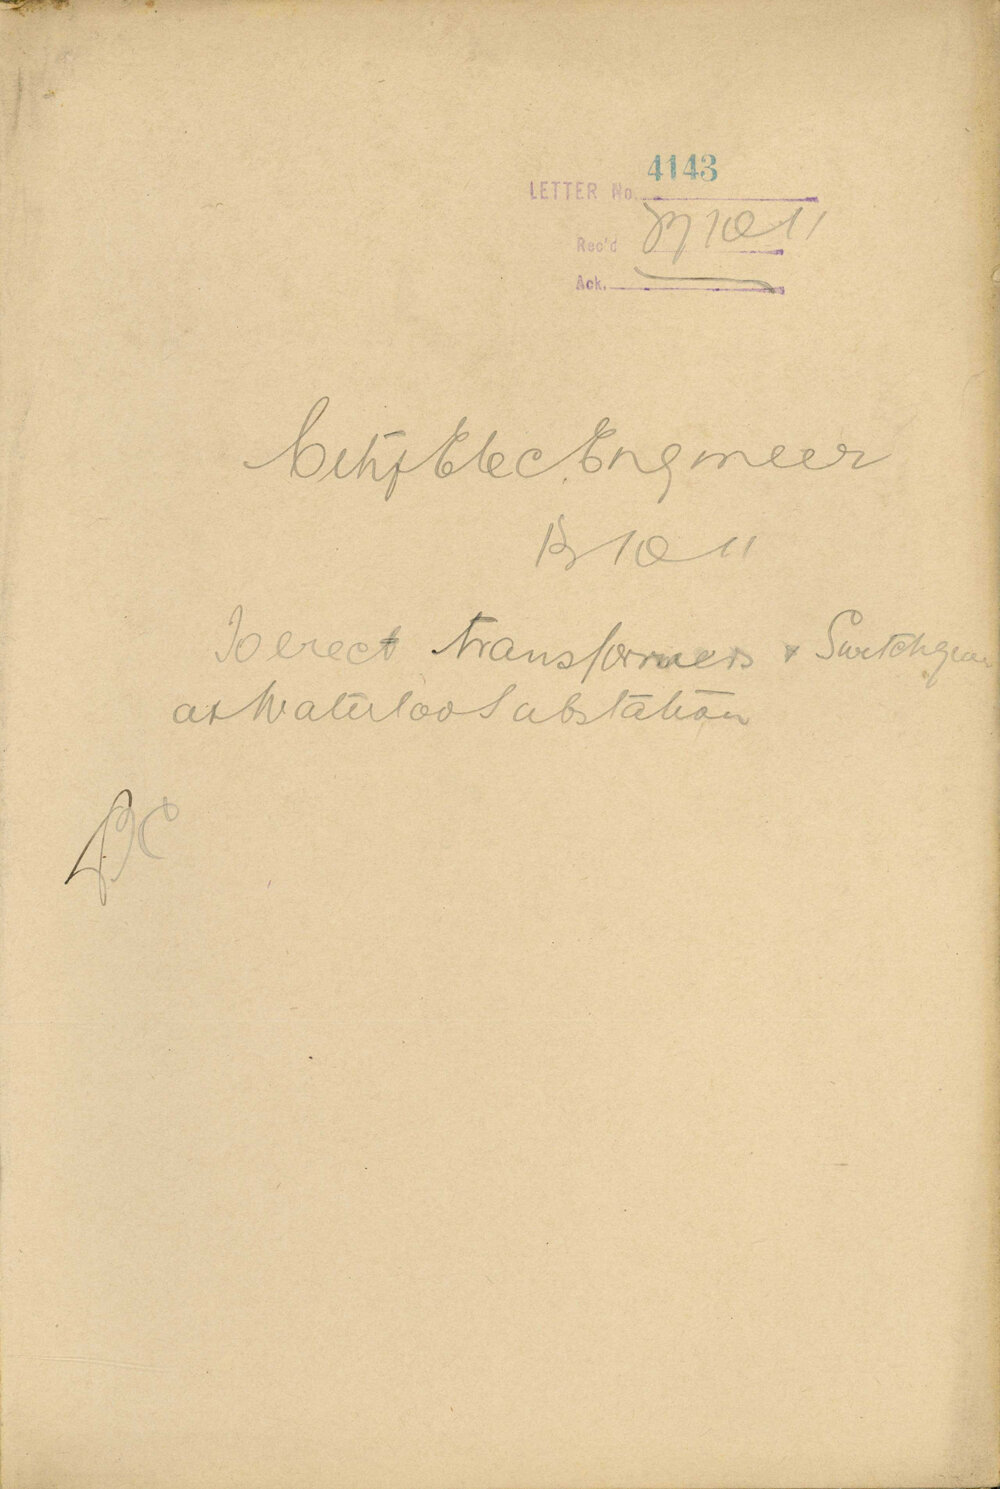 4143
LETTER No.
Rec'd 10 11
Ack.
City Elec Engineer
13 10 11
To erect transformers & Switchgear
at Waterloo Substation